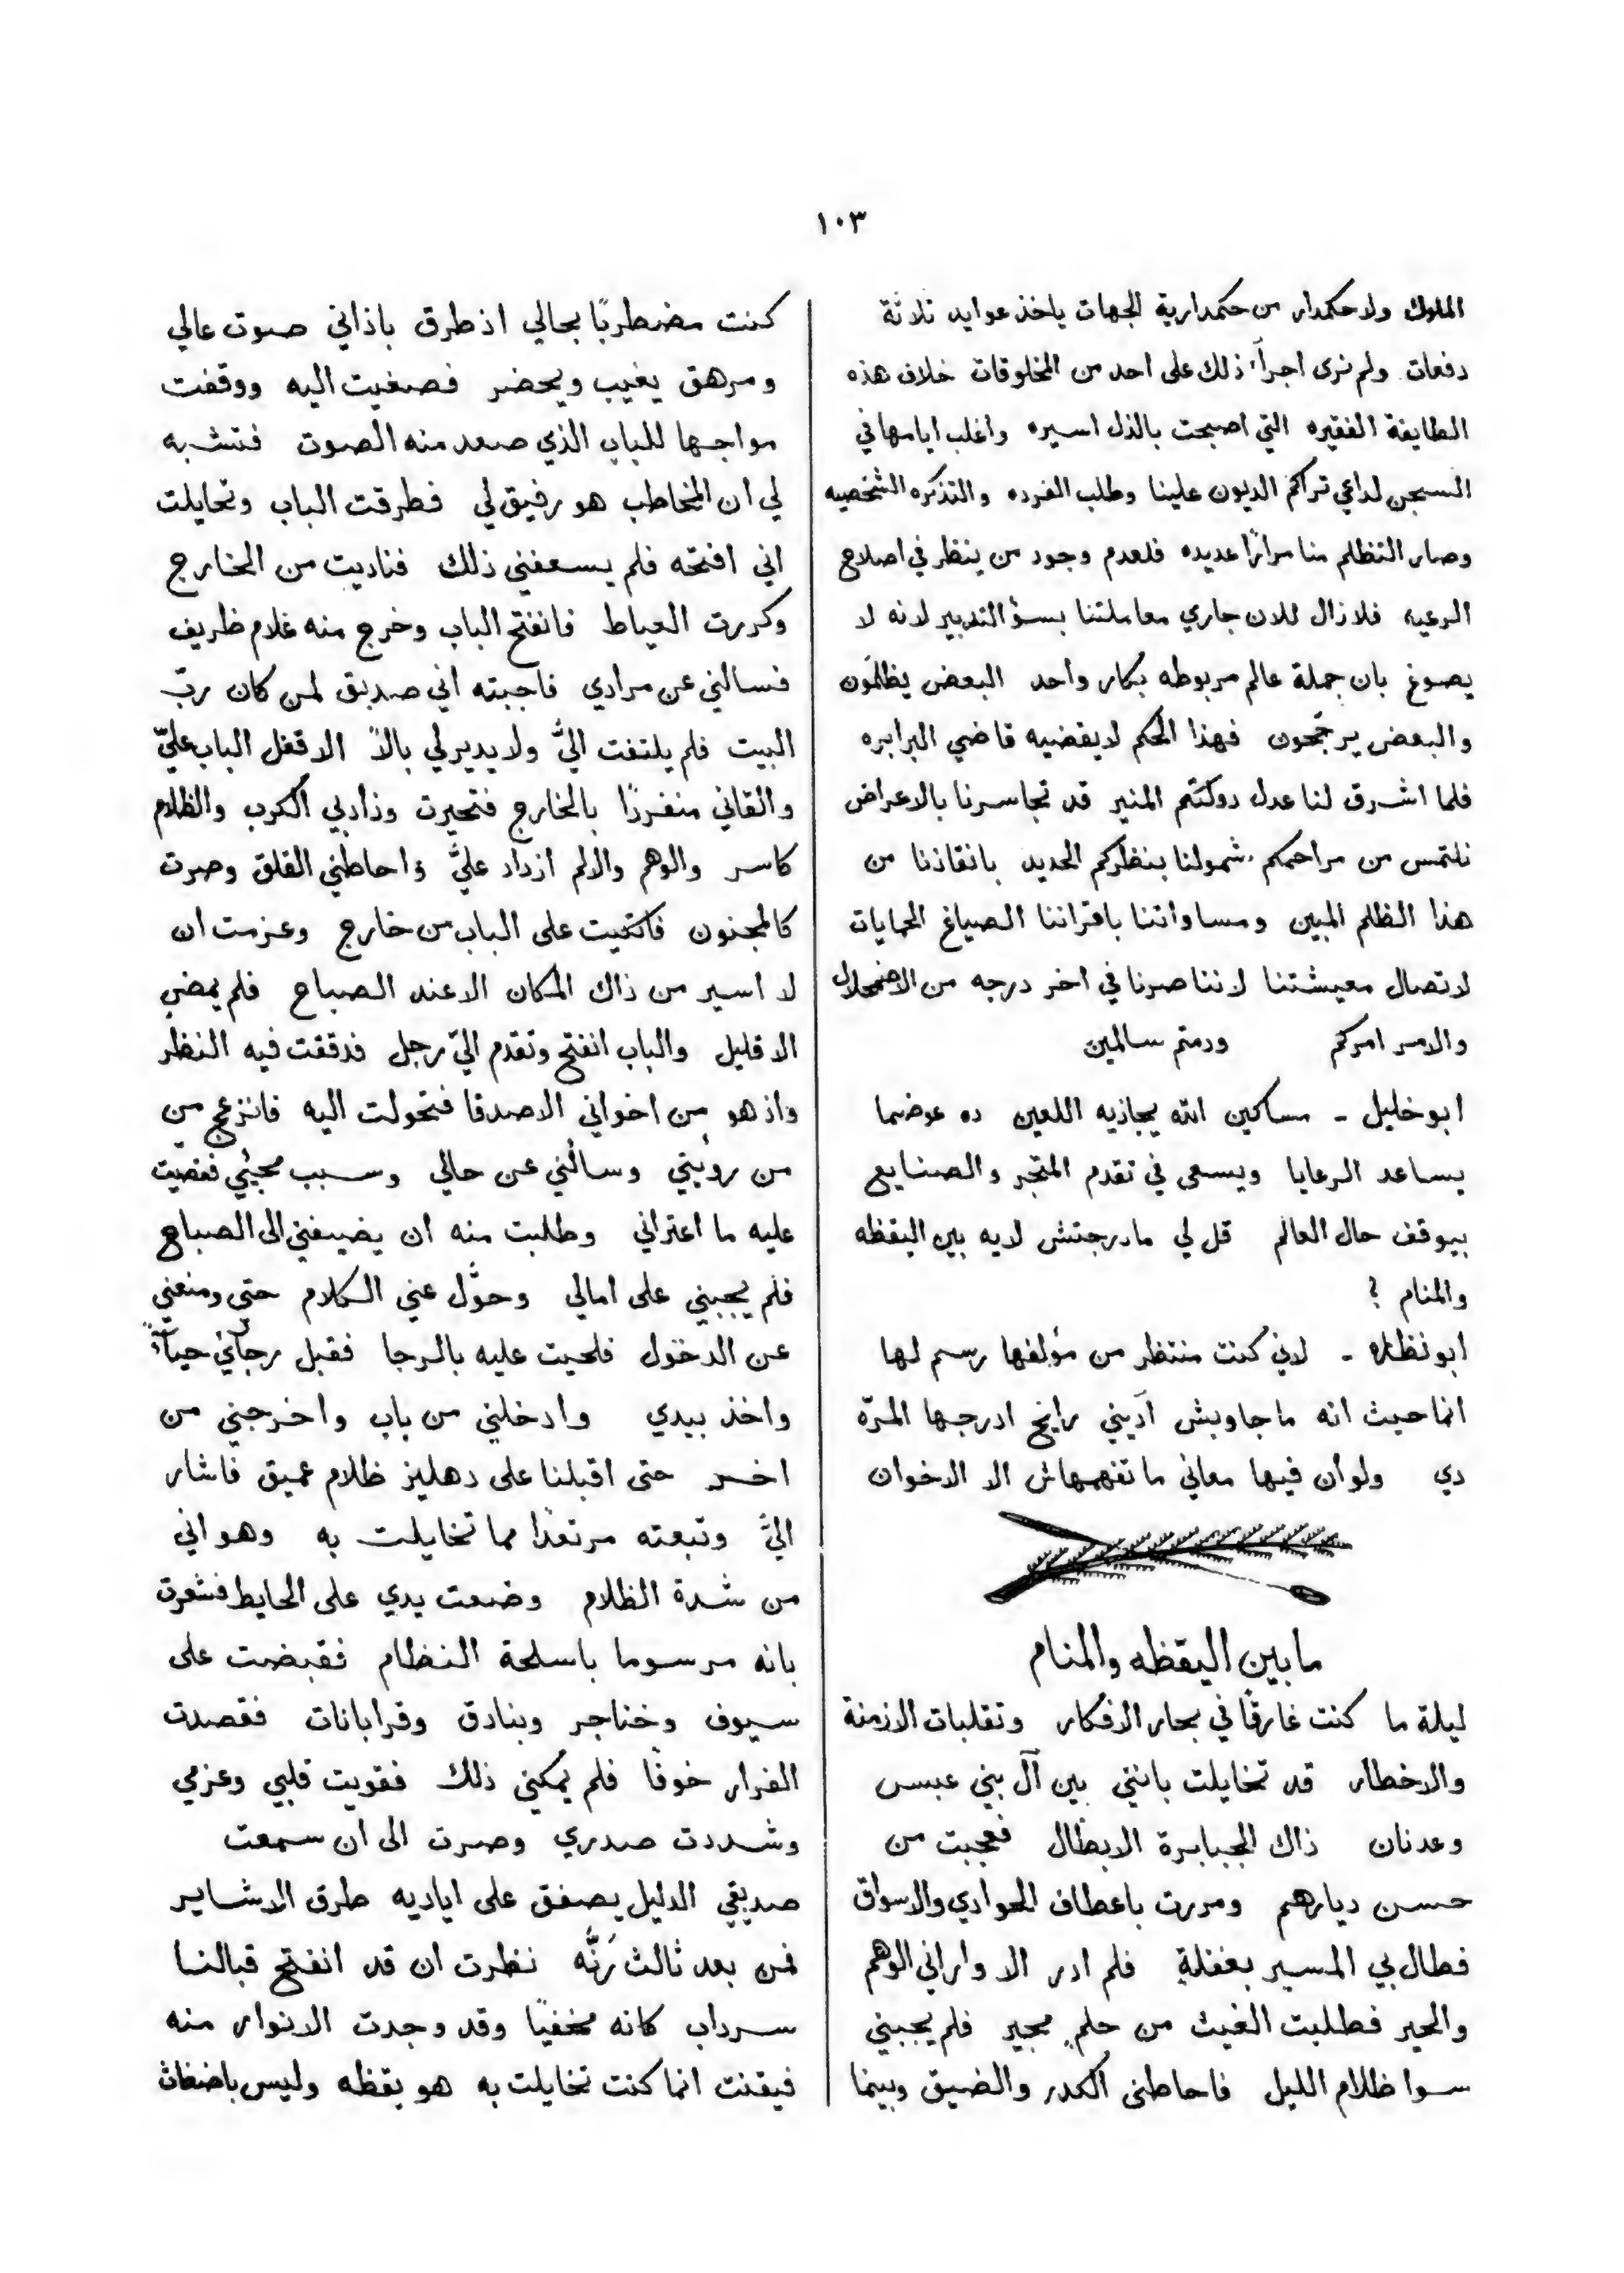 ١٠٣
الملوك ولا حكمدار من حكمدارية الجهات ياخذ عوايد ثلاثة
دفعات ولم نرى اجرآء ذلك على احد من المخلوقات خلاف هذه
الطايفة الفقيره التي اصبحت بالذل اسيره واغلب ايامها في
السجن لداعي تراكم الديون علينا وطلب الفرده والتذكره الشخصيه
وصار التظلم منا مرارًا عديده فلعدم وجود من ينظر في اصلاح
الرعيه فلازال للان جاري معاملتنا بسؤ التدبير لانه لا
يصوغ بان جملة عالم مربوطه بكار واحد البعض يظلمون
والبعض يرجّحون فهذا الحكم لايقضيه قاضي البرابره
فلما اشرق لنا عدل دولتكم المنير قد تجاسرنا بالاعراض
نلتمس من مراحمكم شمولنا بنظركم الحديد بانقاذنا من
هذا الظلم المبين ومساواتنا باقراننا الصياغ الحمايات
لاتصال معيشتنا لاننا صرنا في اخر درجه من الاضمحلال
والامر امركم ودمتم سالمين
ابو خليل ـ مساكين الله يجازيه اللعين ده عوضما
يساعد الرعايا ويسعى في تقدم المتجر والصنايع
بيوقف حال العالم قل لي مادرجتش لايه بين اليقظه
والمنام ؟
ابو نظاره ـ لاني كنت منتظر من مؤلفها رسم لها
انما حيث انه ما جاوبش آديني رايح ادرجها المرّه
دي ولو أن فيها معاني ما تفهمهاش الا الاخوان
ما بين اليقظه والمنام
ليلة ما كنت غارقًا في بحار الافكار وتقلبات الازمنة
والاخطار قد تخايلت بانني بين آل بني عبس
وعدنان ذاك الجبابرة الابطال فعجبت من
حسن ديارهم ومررت باعطاف الحوادي والاسواق
فطال بي المسير بغفلةٍ فلم ادر الا واراني الوهم
والحير فطلبت الغيث من حلمٍ مجير فلم يجبني
سوا ظلام الليل فاحاطنى الكدر والضيق وبينما
كنت مضطربًا بحالي اذ طرق باذاني صوت عالي
ومرهق يغيب ويحضر فصغيت اليه ووقفت
مواجها للباب الذي صعد منه الصوت فتشبه
لي ان المخاطب هو رفيق لي فطرقت الباب وتحايلت
اني افتحه فلم يسعفني ذلك فناديت من الخارج
وكررت العياط فانفتح الباب وخرج منه غلام ظريف
فسالني عن مرادي فاجبته اني صديق لمن كان ربّ
البيت فلم يلتفت اليَّ ولا يدير لي بالاً الا قفل الباب عليّ
والقاني منفردًا بالخارج فتحيرت وزاد بي الكرب والظلام
كاسر والوهم والالم ازداد عليَّ واحاطني القلق وصرت
كالمجنون فاتكيت على الباب من خارج وعزمت ان
لا اسير من ذاك المكان الا عند الصباح فلم يمضي
الا قليل والباب انفتح وتقدم اليّ رجل فدققت فيه النظر
واذ هو من اخواني الاصدقا فتحولت اليه فانزعج من
من رويتي وسالني عن حالي وسبب مجيئي فقصيت
عليه ما اعتراني وطلبت منه ان يضيفني الى الصباح
فلم يجيبني على امالي وحوَّل عني الكلام حتى ومنعني
عن الدخول فلحيت عليه بالرجا فقبل رجآئي حيآءً
واخذ بيدي وادخلني من باب واخرجني من
اخر حتى اقبلنا على دهليز ظلام عميق فاشار
اليَّ وتبعته مرتعدًا مما تخايلت به وهو اني
من شدة الظلام وضعت يدي على الحايط فشعرت
بانه مرسوما باسلحة النظام فقبضت على
سيوف وخناجر وبنادق وقرابانات فقصدت
الفرار خوفًا فلم يمكني ذلك فقويت قلبي وعزمي
وشددت صدري وصرت الى ان سمعت
صديقي الدليل يصفق على اياديه طرق الاشاير
فمن بعد ثالث رنَّه نظرت ان قد انفتح قبالنا
سرداب كانه مخفيًا وقد وجدت الانوار منه
فيقنت انما كنت تخايلت به هو يقظه وليس باضغاث